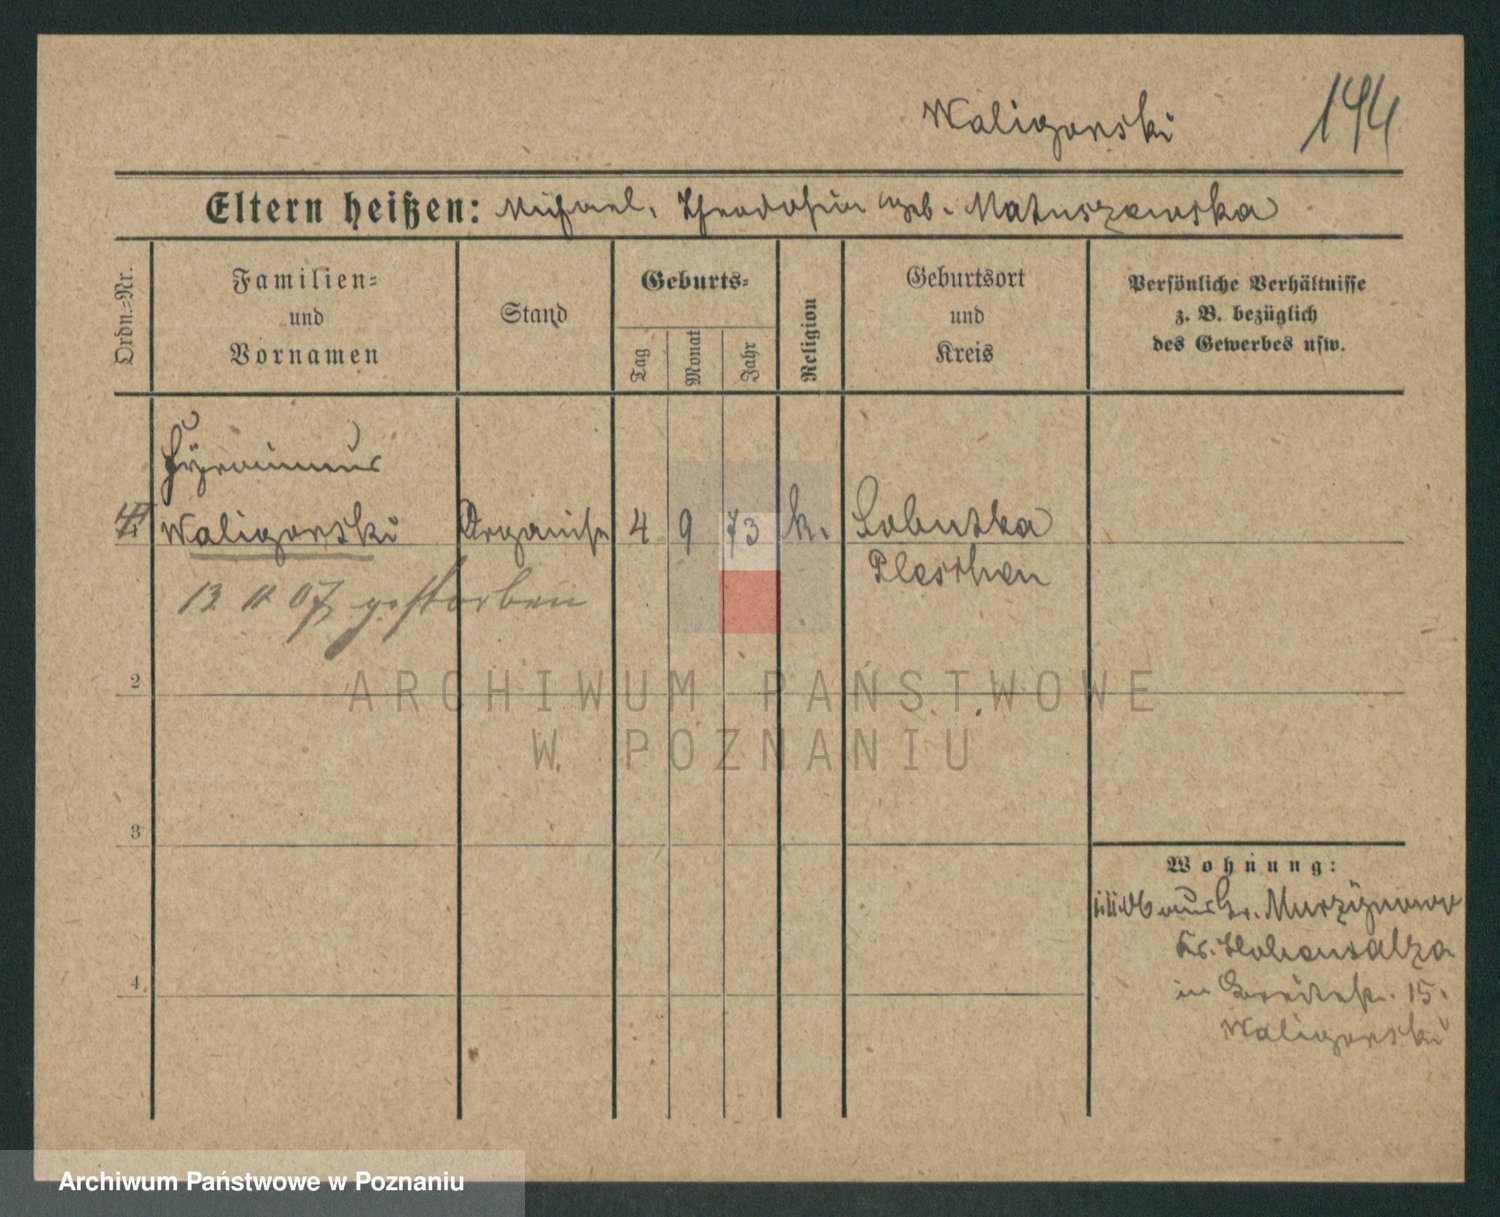 Waligorski 144
Eltern heißen: Michael, Theodosia geb. Matuszewska
Ordn.=Nr.
Familien=
und
Vornamen
Stand
Geburts=
Tag
Monat
Jahr
Religion
Geburtsort
und
Kreis
Persönliche Verhältnisse
z. B. bezüglich
des Gewerbes usw.
Waligorski Organist 4 9 73 k. Lobuska
Pleschen
12 11 07 gestorben
2
3
4
Wohnung:
aus Gr. Murzynowo
Kr. Hohensalza
in Breitestr. 15.
Waligorski
ARCHIWUM PAŃSTWOWE
W POZNANIU
Archiwum Państwowe w Poznaniu